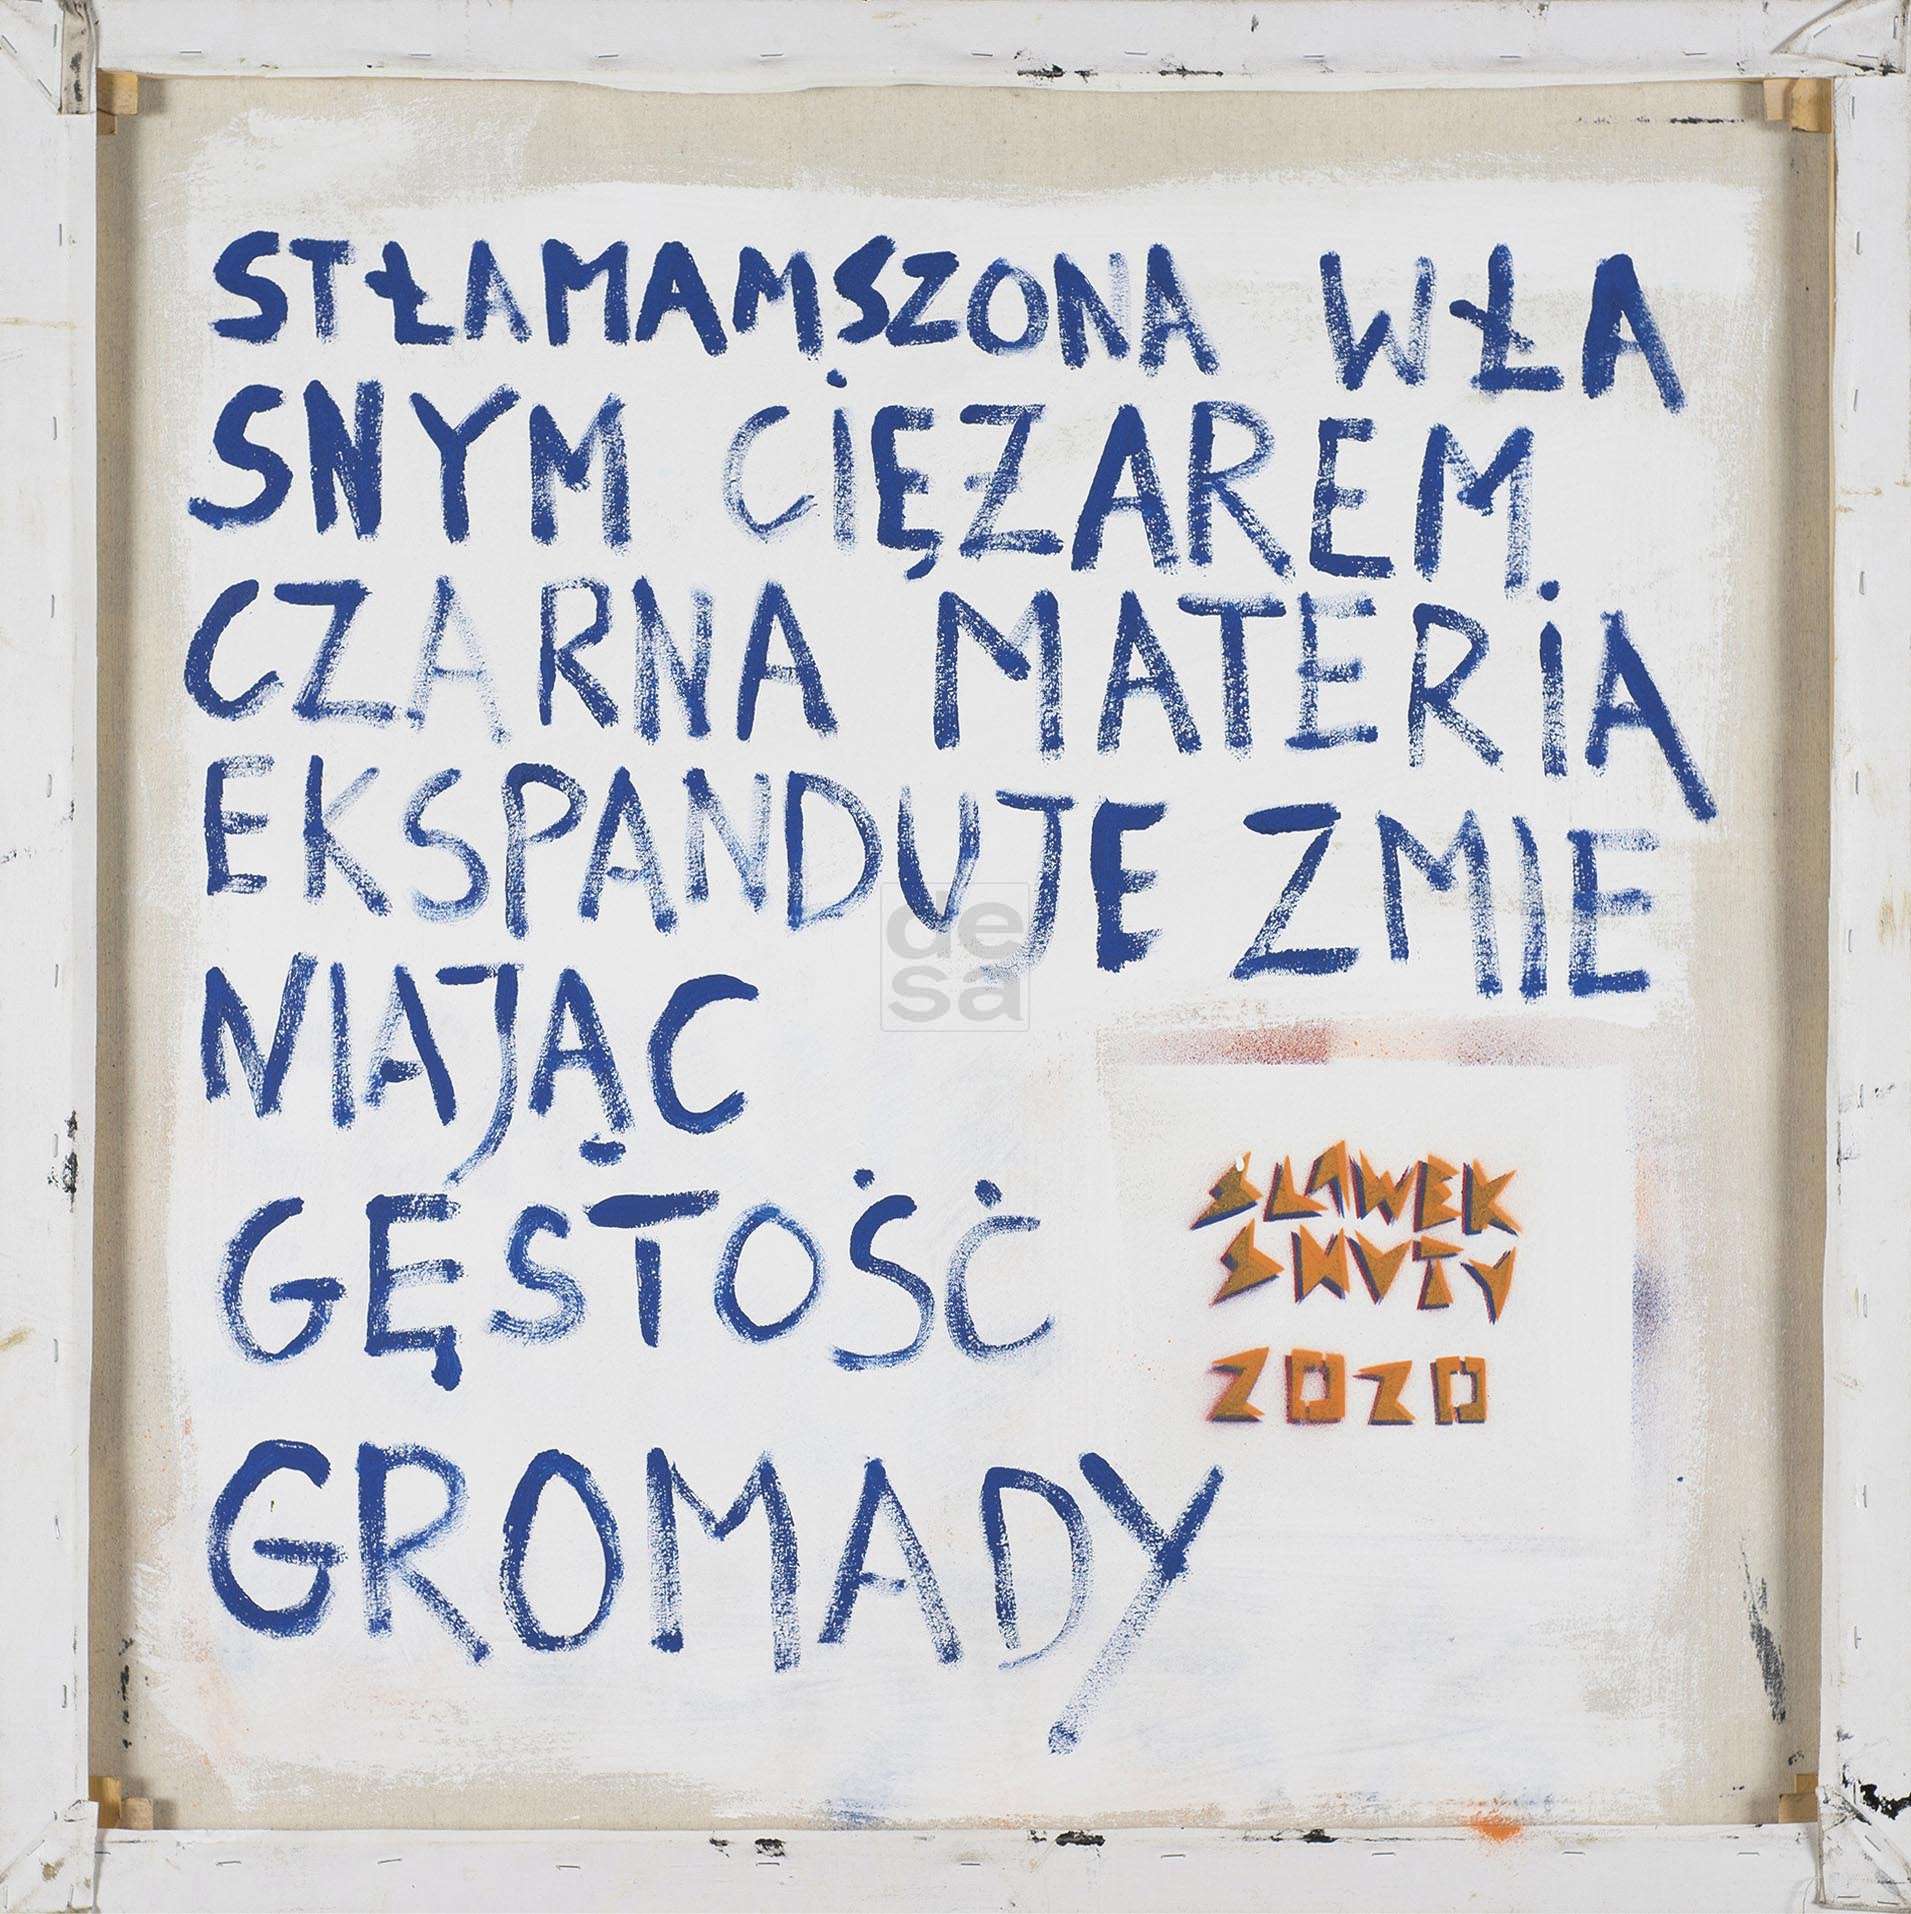 STŁAMAMSZONA WŁA
SNYM CIĘŻAREM
CZARNA MATERIA
EKSPANDUJE ZMIE
NIAJĄC
GĘSTOŚĆ
GROMADY
SLAWEK
SHUTY
2020
desa